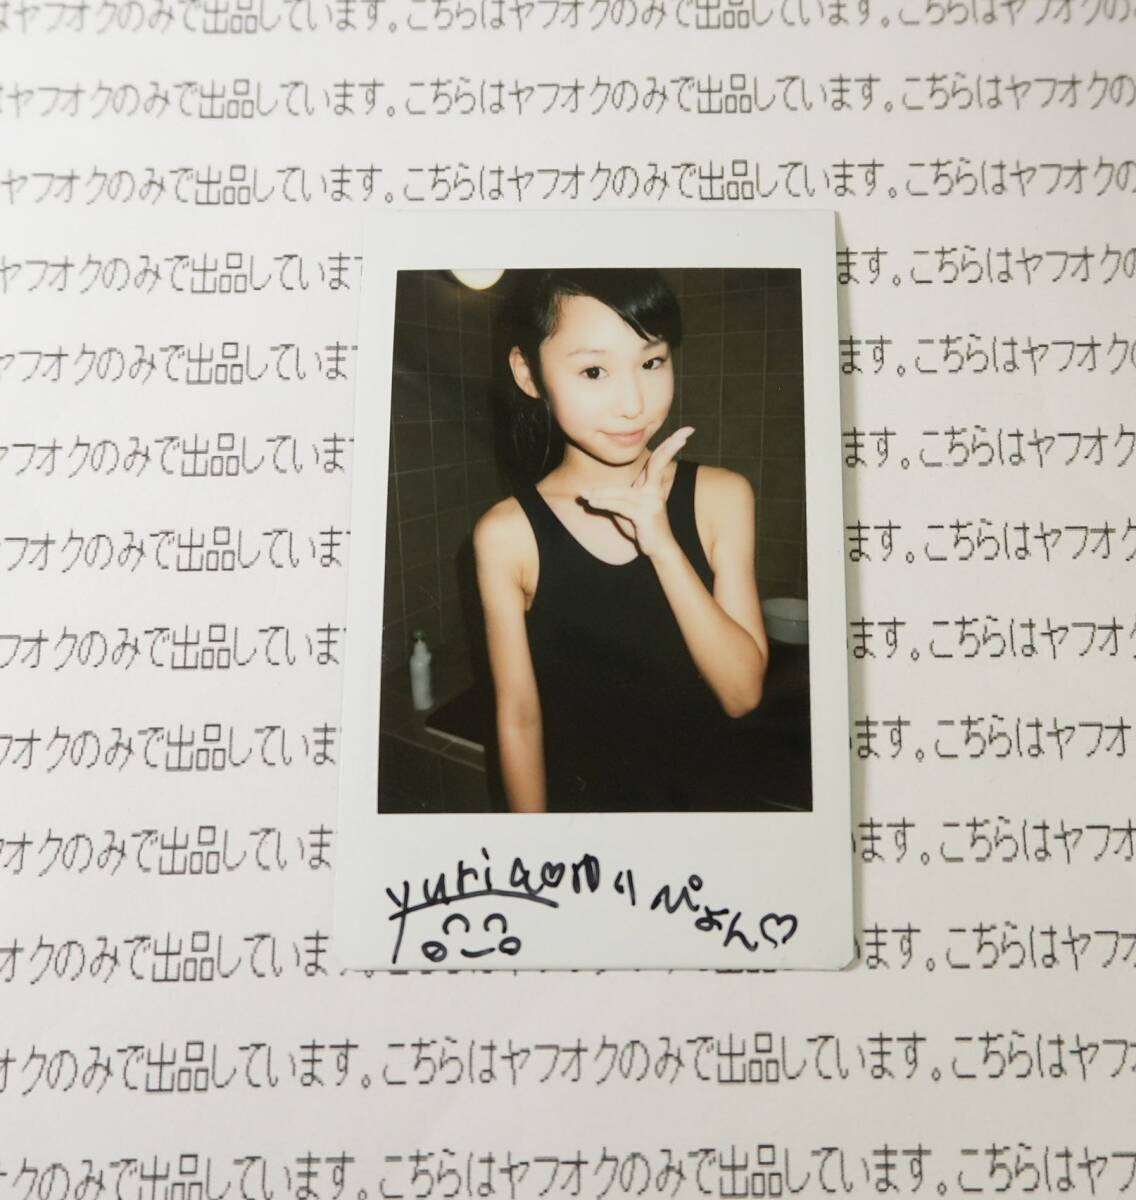 はヤフオクのみで出品しています。こちらはヤフオクのみで出品しています。こちらはヤフオクの
はヤフオクのみで出品しています。こちらはヤフオクのみで出品しています。こちらはヤフオクの
ヤフオクのみで出品しています。こちらはヤフオクのみで出品しています。こちらはヤフオクの
ヤフオクのみで出品していま ます。こちらはヤフオクの
ヤフオクのみで出品しています ます。こちらはヤフオクの
ヤフオクのみで出品しています ます。こちらはヤフオク
フオクのみで出品しています ます。こちらはヤフオク
フオクのみで出品していま ます。こちらはヤフオク
フオクのみで出品しています ます。こちらはヤフオ
オクのみで出品していま ます。こちらはヤフオ
yuria♡ゆりぴょん♡
オクのみで出品していま ます。こちらはヤフオ
オクのみで出品しています。こちらはヤフオクのみで出品しています。こちらはヤフ
オクのみで出品しています。こちらはヤフオクのみで出品しています。こちらはヤフ